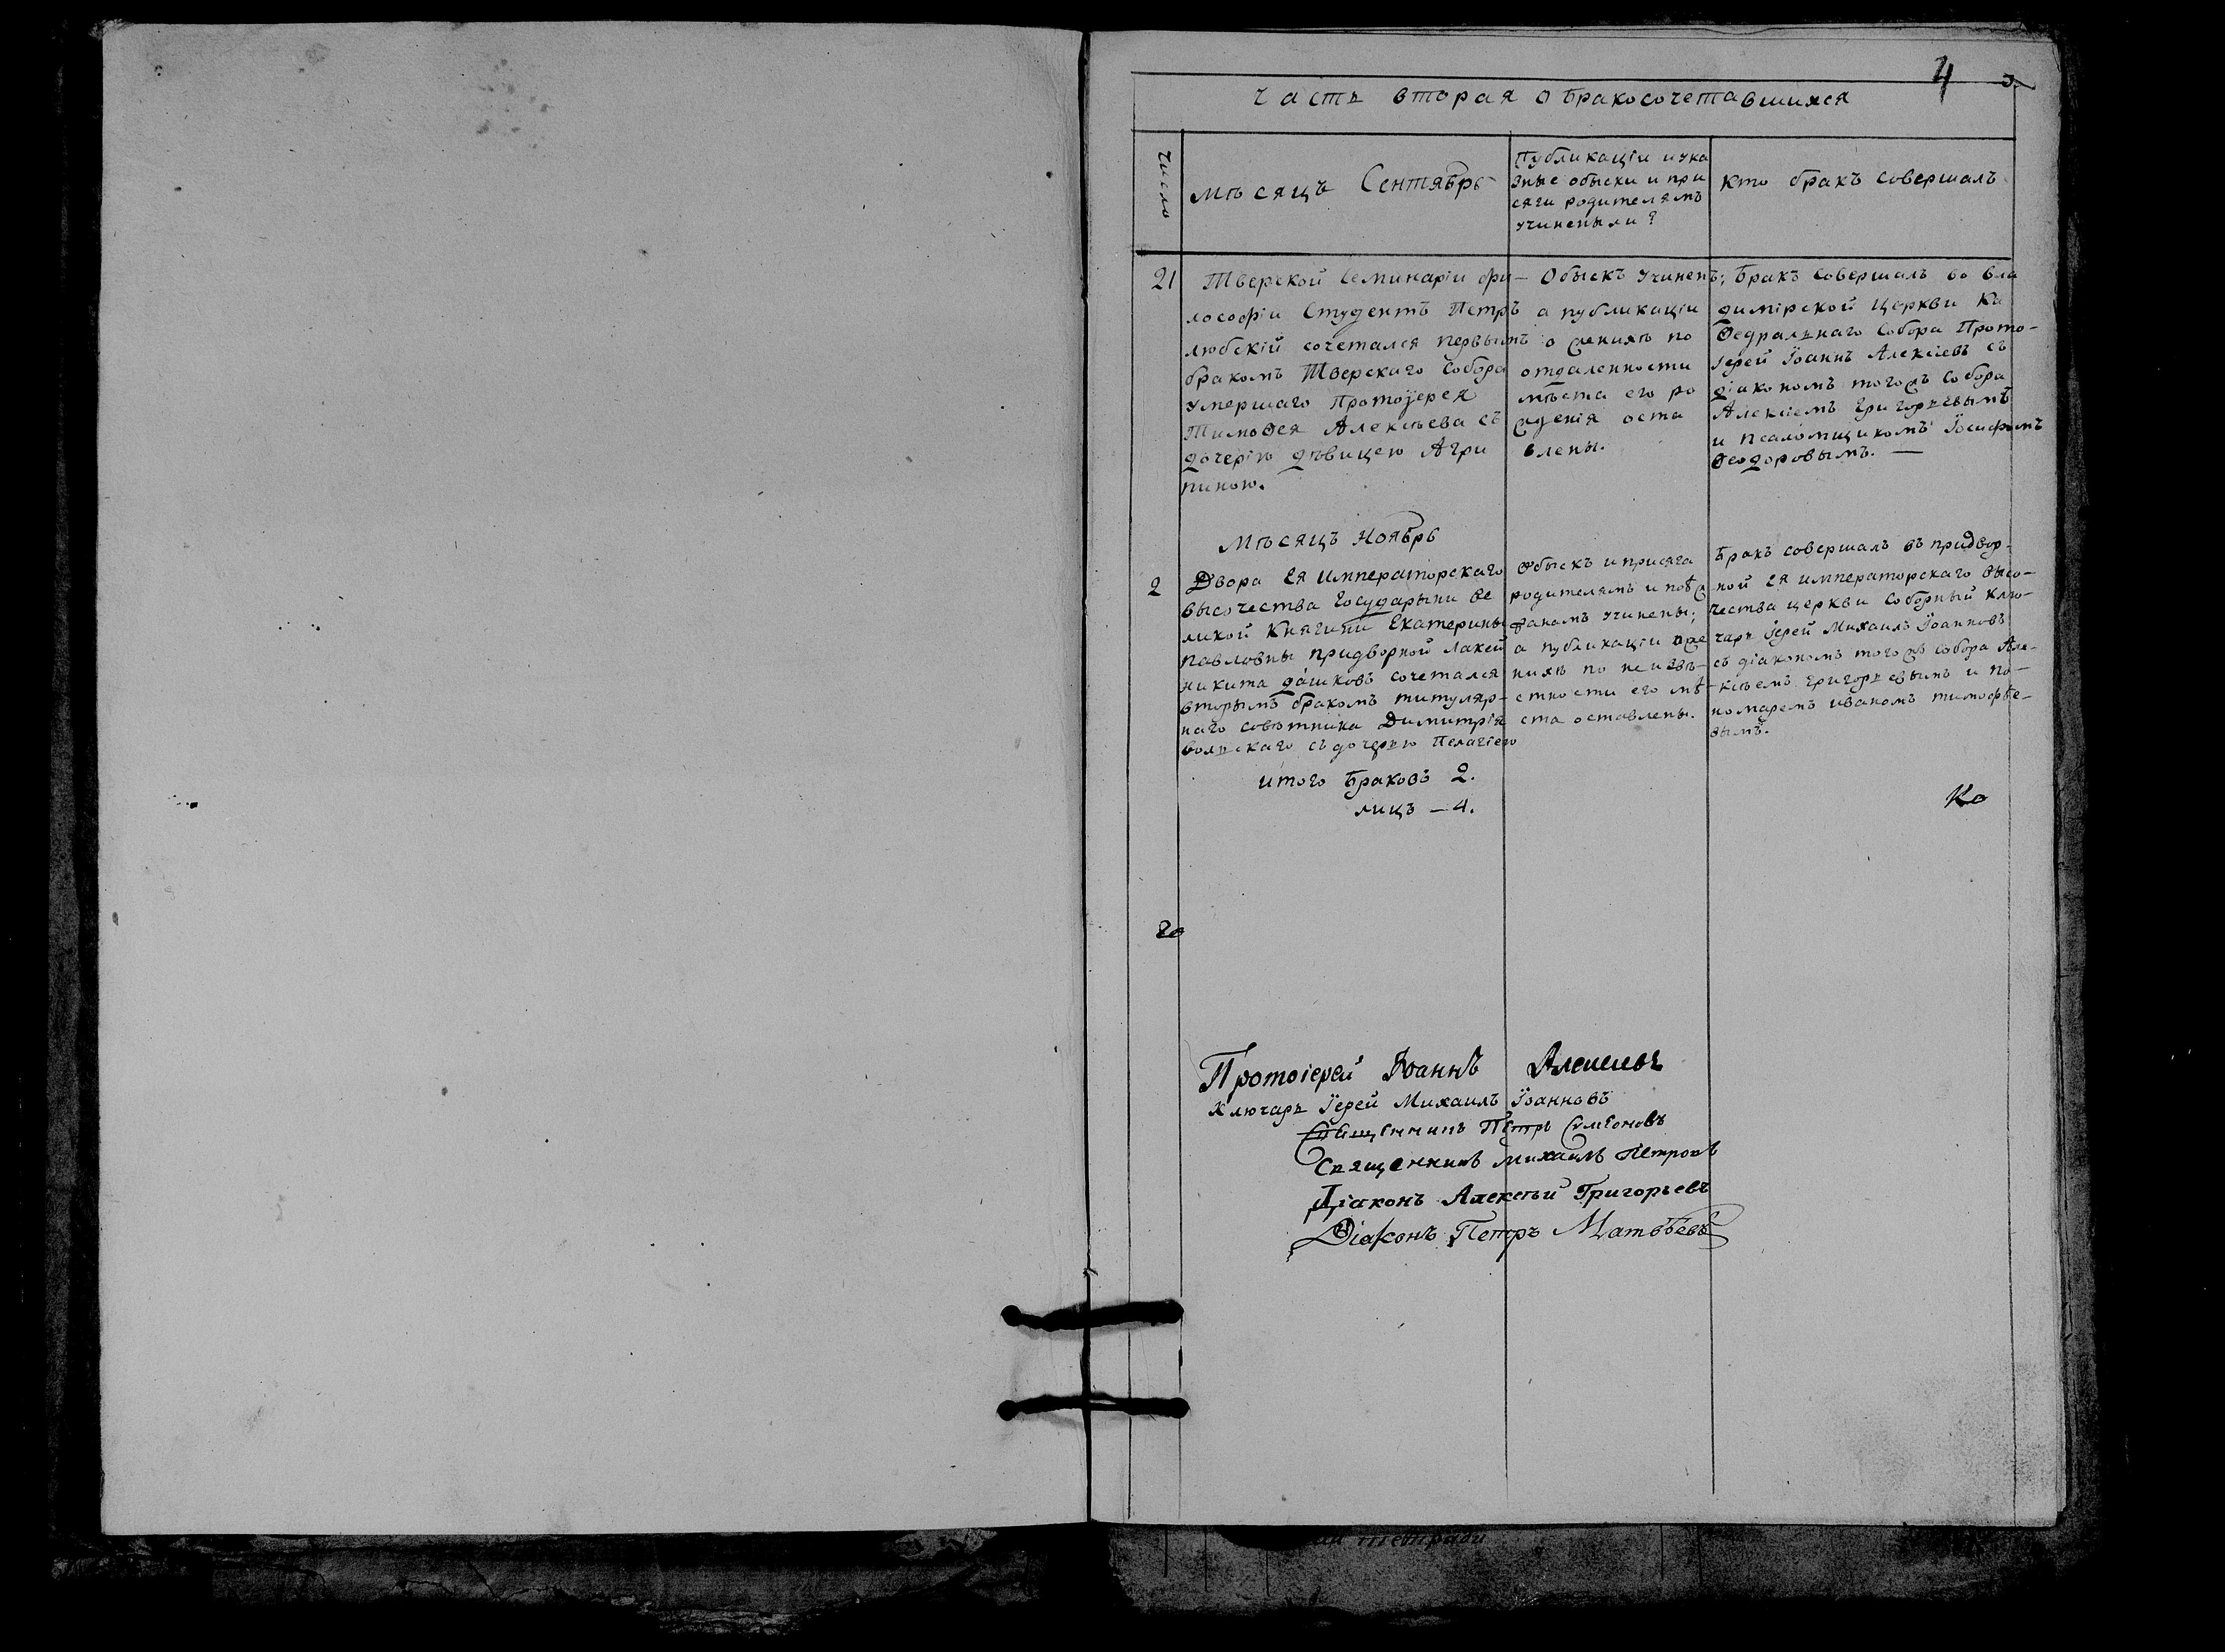 4
3
Часть вторая о бракосочетавшихся
Число
Мѣсяцъ Сентябрь
Публикаціи и ука
зные обыски и при
сяги родителямъ
учинены ли?
Кто бракъ совершалъ
21
Тверской Семинаріи фи-
лософіи Студентъ Петръ
любскій сочетался первымъ
бракомъ Тверскаго Собора
умершаго Протоіерея
Тимоѳея Алексѣева съ
дочерію дѣвицею Агри
пиною.
Обыскъ учиненъ;
а публикаціи
о женихѣ по
отдаленности
мѣста его ро
жденія оста
влены.
Бракъ совершалъ во Вла
димірской Церкви Ка
ѳедральнаго Собора Прото-
іерей Іоаннъ Алексіевъ съ
діакономъ тогожъ Собора
Алексіемъ Григорьевымъ
и псаломщикомъ Іосифомъ
Ѳеодоровымъ. —
Мѣсяцъ Ноябрь
2
Двора Ея Императорскаго
высочества Государыни Ве
ликой Княгини Екатерины
Павловны придворной лакей
Никита Дашковъ сочетался
вторымъ бракомъ титуляр-
наго совѣтника Димитрія
Вольскаго съ дочерью Пелагіею
Обыскъ и присяга
родителямъ и поѣз
жанамъ учинены;
а публикаціи о же
нихѣ по неизвѣ-
стности его мѣ-
ста оставлены.
Бракъ совершалъ въ придвор-
ной Ея Императорскаго Высо-
чества церкви Соборный Клю-
чарь Іерей Михаилъ Іоанновъ
съ діакономъ тогожъ собора Але-
ксѣемъ Григорьевымъ и по-
номаремъ Иваномъ Тимофѣе-
вымъ.
Итого Браковъ 2.
лицъ — 4.
Ко
Протоіерей Іоаннъ Алексіевъ
Ключарь Іерей Михаилъ Іоанновъ
Священникъ Петръ Симеоновъ
Священникъ Михаилъ Петровъ
Діаконъ Алексѣй Григорьевъ
Діаконъ Петръ Матвѣевъ
тетради